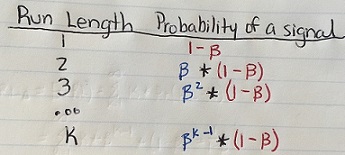 Run Length Probability of a signal
1 1-β
2 β * (1-β)
3 β² * (1-β)
...
K β^K-1 * (1-β)